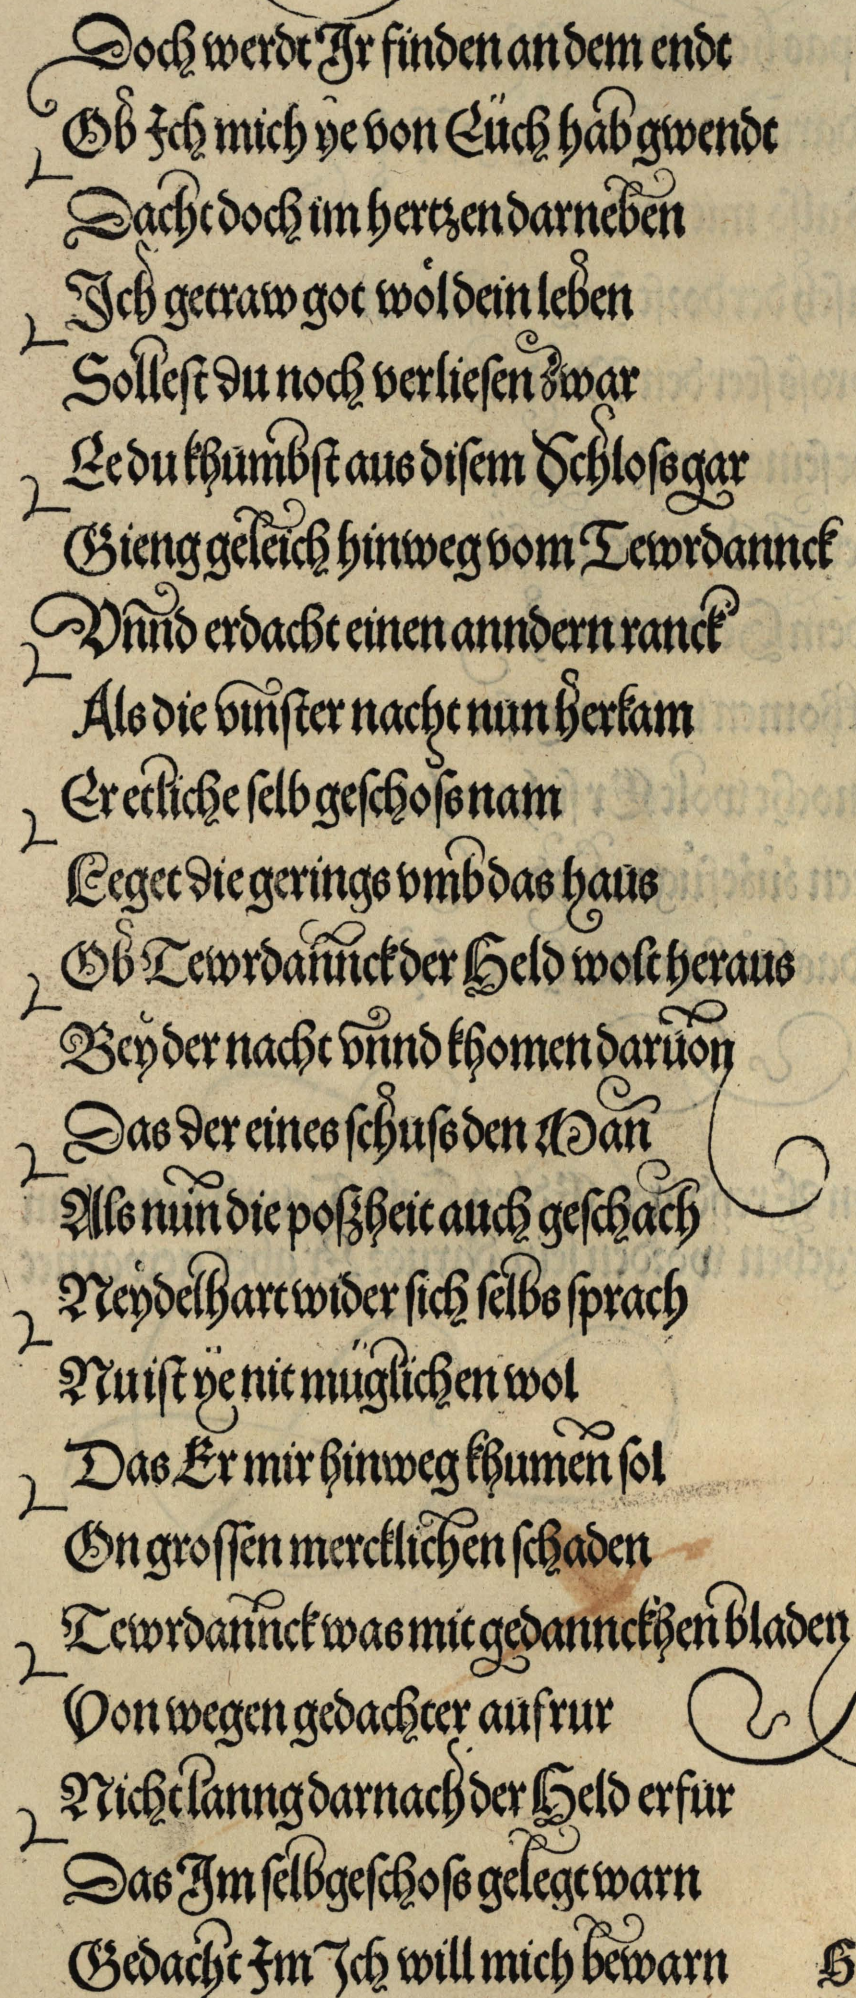 Doch werdt Ir finden an dem endt
Ob Ich mich ÿe von Eüch hab gwendt
Dacht doch im hertzen darneben
Ich getraw got wöl dein leben
Sollest du noch verliesen zwar
Ee du khumbst aus disem Schloss gar
Gieng geleich hinweg vom Tewrdannck
Vnnd erdacht einen anndern ranck
Als die vinster nacht nun herkam
Er etliche selbgeschoss nam
Leget die gerings vmb das haus
Ob Tewrdannck der Held wolt heraus
Bey der nacht vnnd khomen daruon
Das der eines schuss den Man
Als nun die poszheit auch geschach
Neydelhart wider sich selbs sprach
Nu ist ÿe nit müglichen wol
Das Er mir hinweg khumen sol
On grossen mercklichen schaden
Tewrdannck was mit gedannckhen bladen
Von wegen gedachter aufrur
Nicht lanng darnach der Held erfur
Das Im selbgeschoss gelegt warn
Gedacht Im Ich will mich bewarn